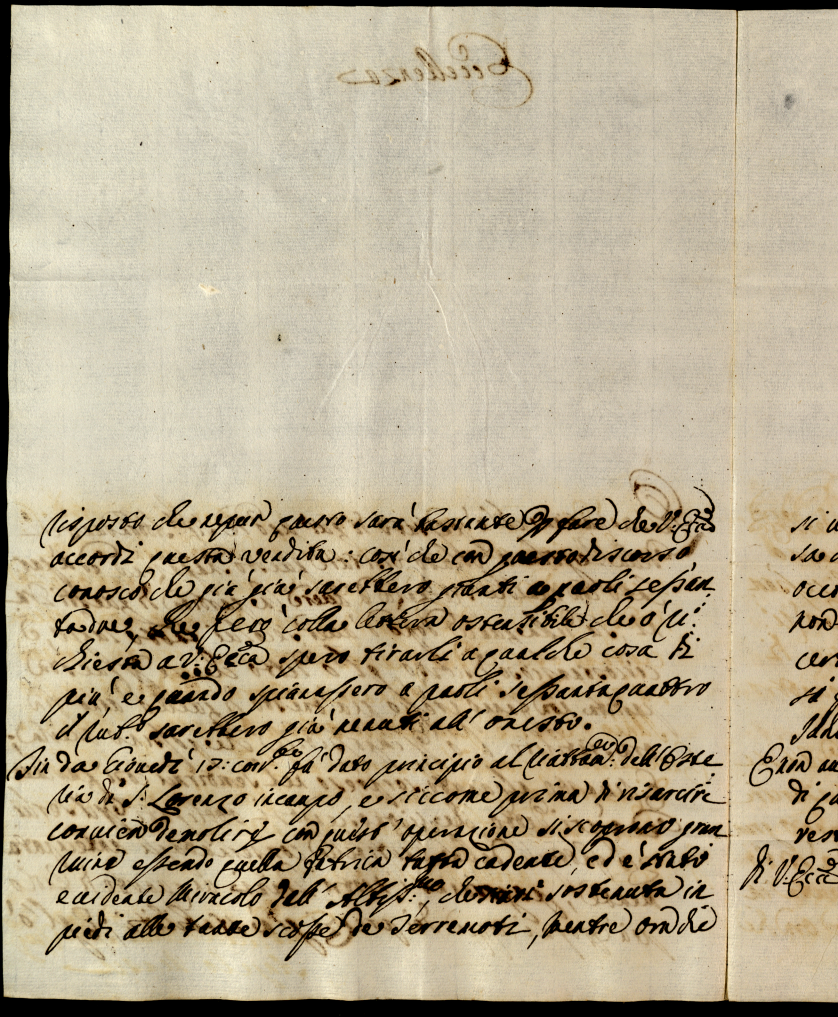 Eccellenza
risposto che nepur questo sarà bastante per fare che V: Ecc:za
accordi questa vendita: così che con questo discorso
conosco che già già sarebbero pronti a paoli sessan
tadue, che però colla lettera ostensibile che ò ri:
chiesta a V: Ecc:za spero tirarli a qualche cosa di
più, e quando spuntassero a paoli sessantaquattro
il tutto sarebbero già venuti all' onesto.
Sin da Giovedì 17: corr:te fu dato principio al riattam:to dell' Oste
ria di S: Lorenzo in campo, e siccome prima di risarcire
convien demolire con quest' operazione si scoprono gran
ruine essendo quella fabrica tutta cadente, ed è stato
evidente Miracolo dell' Altiss:mo, che siasi sostenuta in
piedi alle tante scosse de Terremoti, mentre ora di
E non
di
di V: Ecc:za